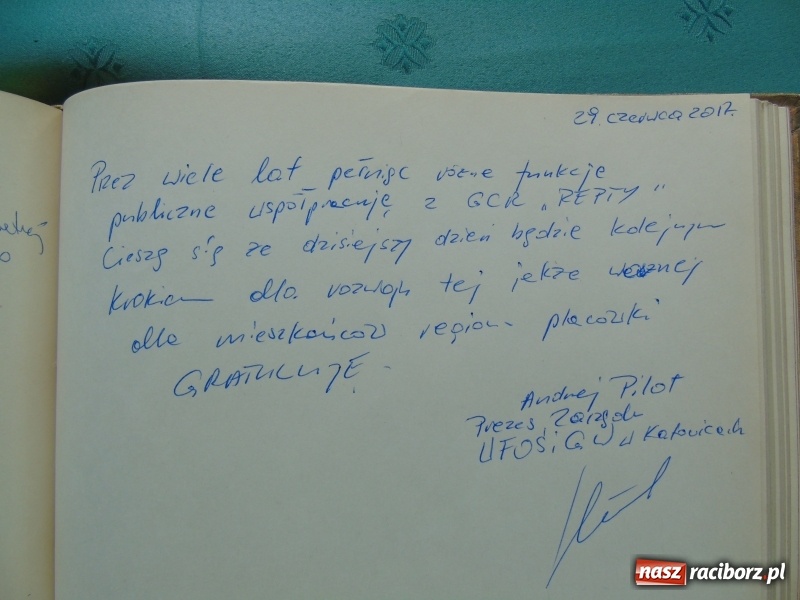 29. czerwca 2017.
Przez wiele lat pełniąc różne funkcje
publiczne współpracuję z GCR „REPTY"
Cieszę się że dzisiejszy dzień będzie kolejnym
krokiem dla rozwoju tej jakże ważnej
dla mieszkańców regionu placówki
GRATULUJĘ.
Andrzej Pilot
Prezes Zarządu
WFOŚiGW w Katowicach
nasz raciborz.pl